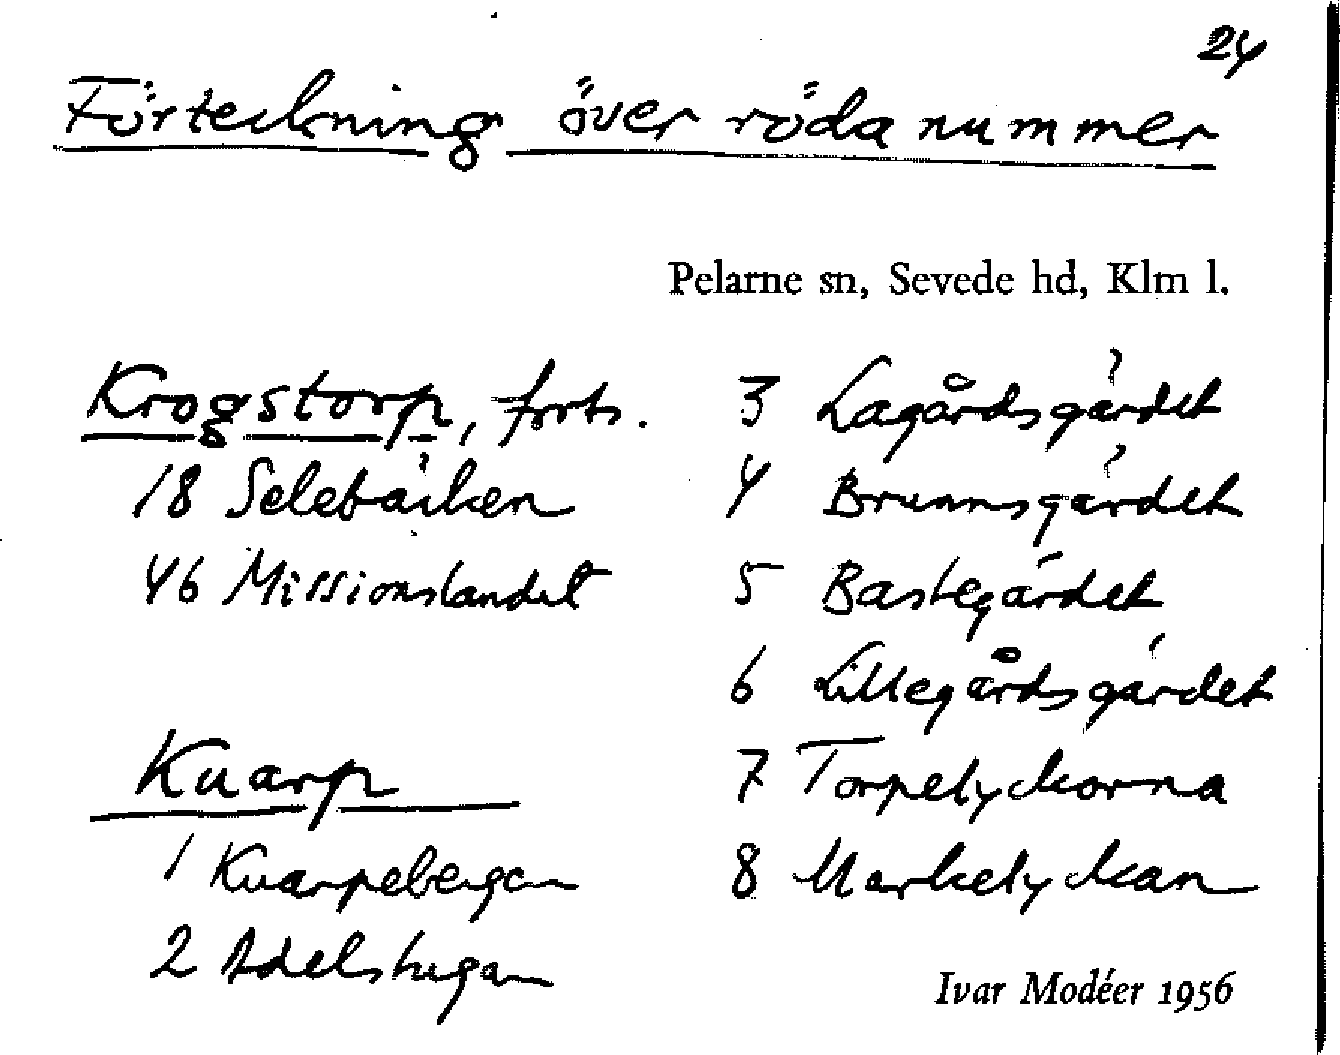 24
Förteckning över röda nummer
Pelarne sn, Sevede hd, Klm l.
Krogstorp, forts.
18 Selebäcken
46 Missionslandet
Kuarp
1 Kuarpebergen
2 Adelstugan
3 Lagårdsgärdet
4 Brunnsgärdet
5 Bastegärdet
6 Lillegårdsgärdet
7 Torpelyckorna
8 Markelyckan
Ivar Modéer 1956